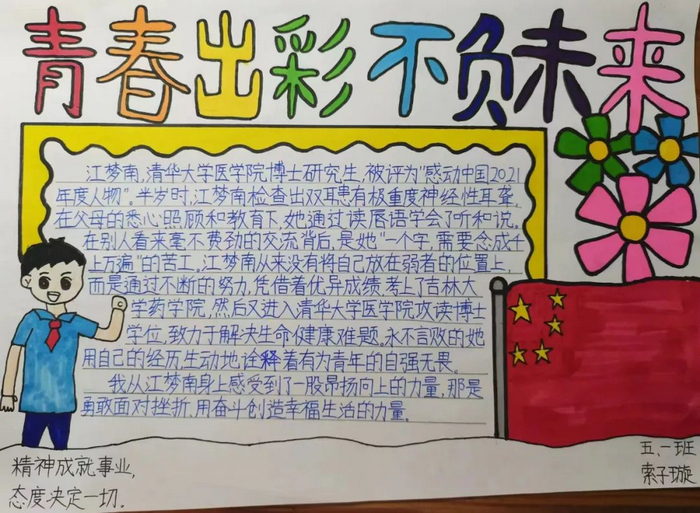 青春出彩 不负未来
江梦南,清华大学医学院博士研究生,被评为"感动中国2021
年度人物"。半岁时,江梦南检查出双耳患有极重度神经性耳聋,
在父母的悉心照顾和教育下,她通过读唇语学会了听和说。
在别人看来毫不费劲的交流背后,是她"一个字,需要念成千
上万遍"的苦工。江梦南从来没有将自己放在弱者的位置上,
而是通过不断的努力,凭借着优异成绩考上了吉林大
学药学院,然后又进入清华大学医学院攻读博士
学位,致力于解决生命健康难题。永不言败的她
用自己的经历生动地诠释着有为青年的自强无畏。
我从江梦南身上感受到了一股昂扬向上的力量,那是
勇敢面对挫折,用奋斗创造幸福生活的力量。
精神成就事业,
态度决定一切.
五.一班
索子璇